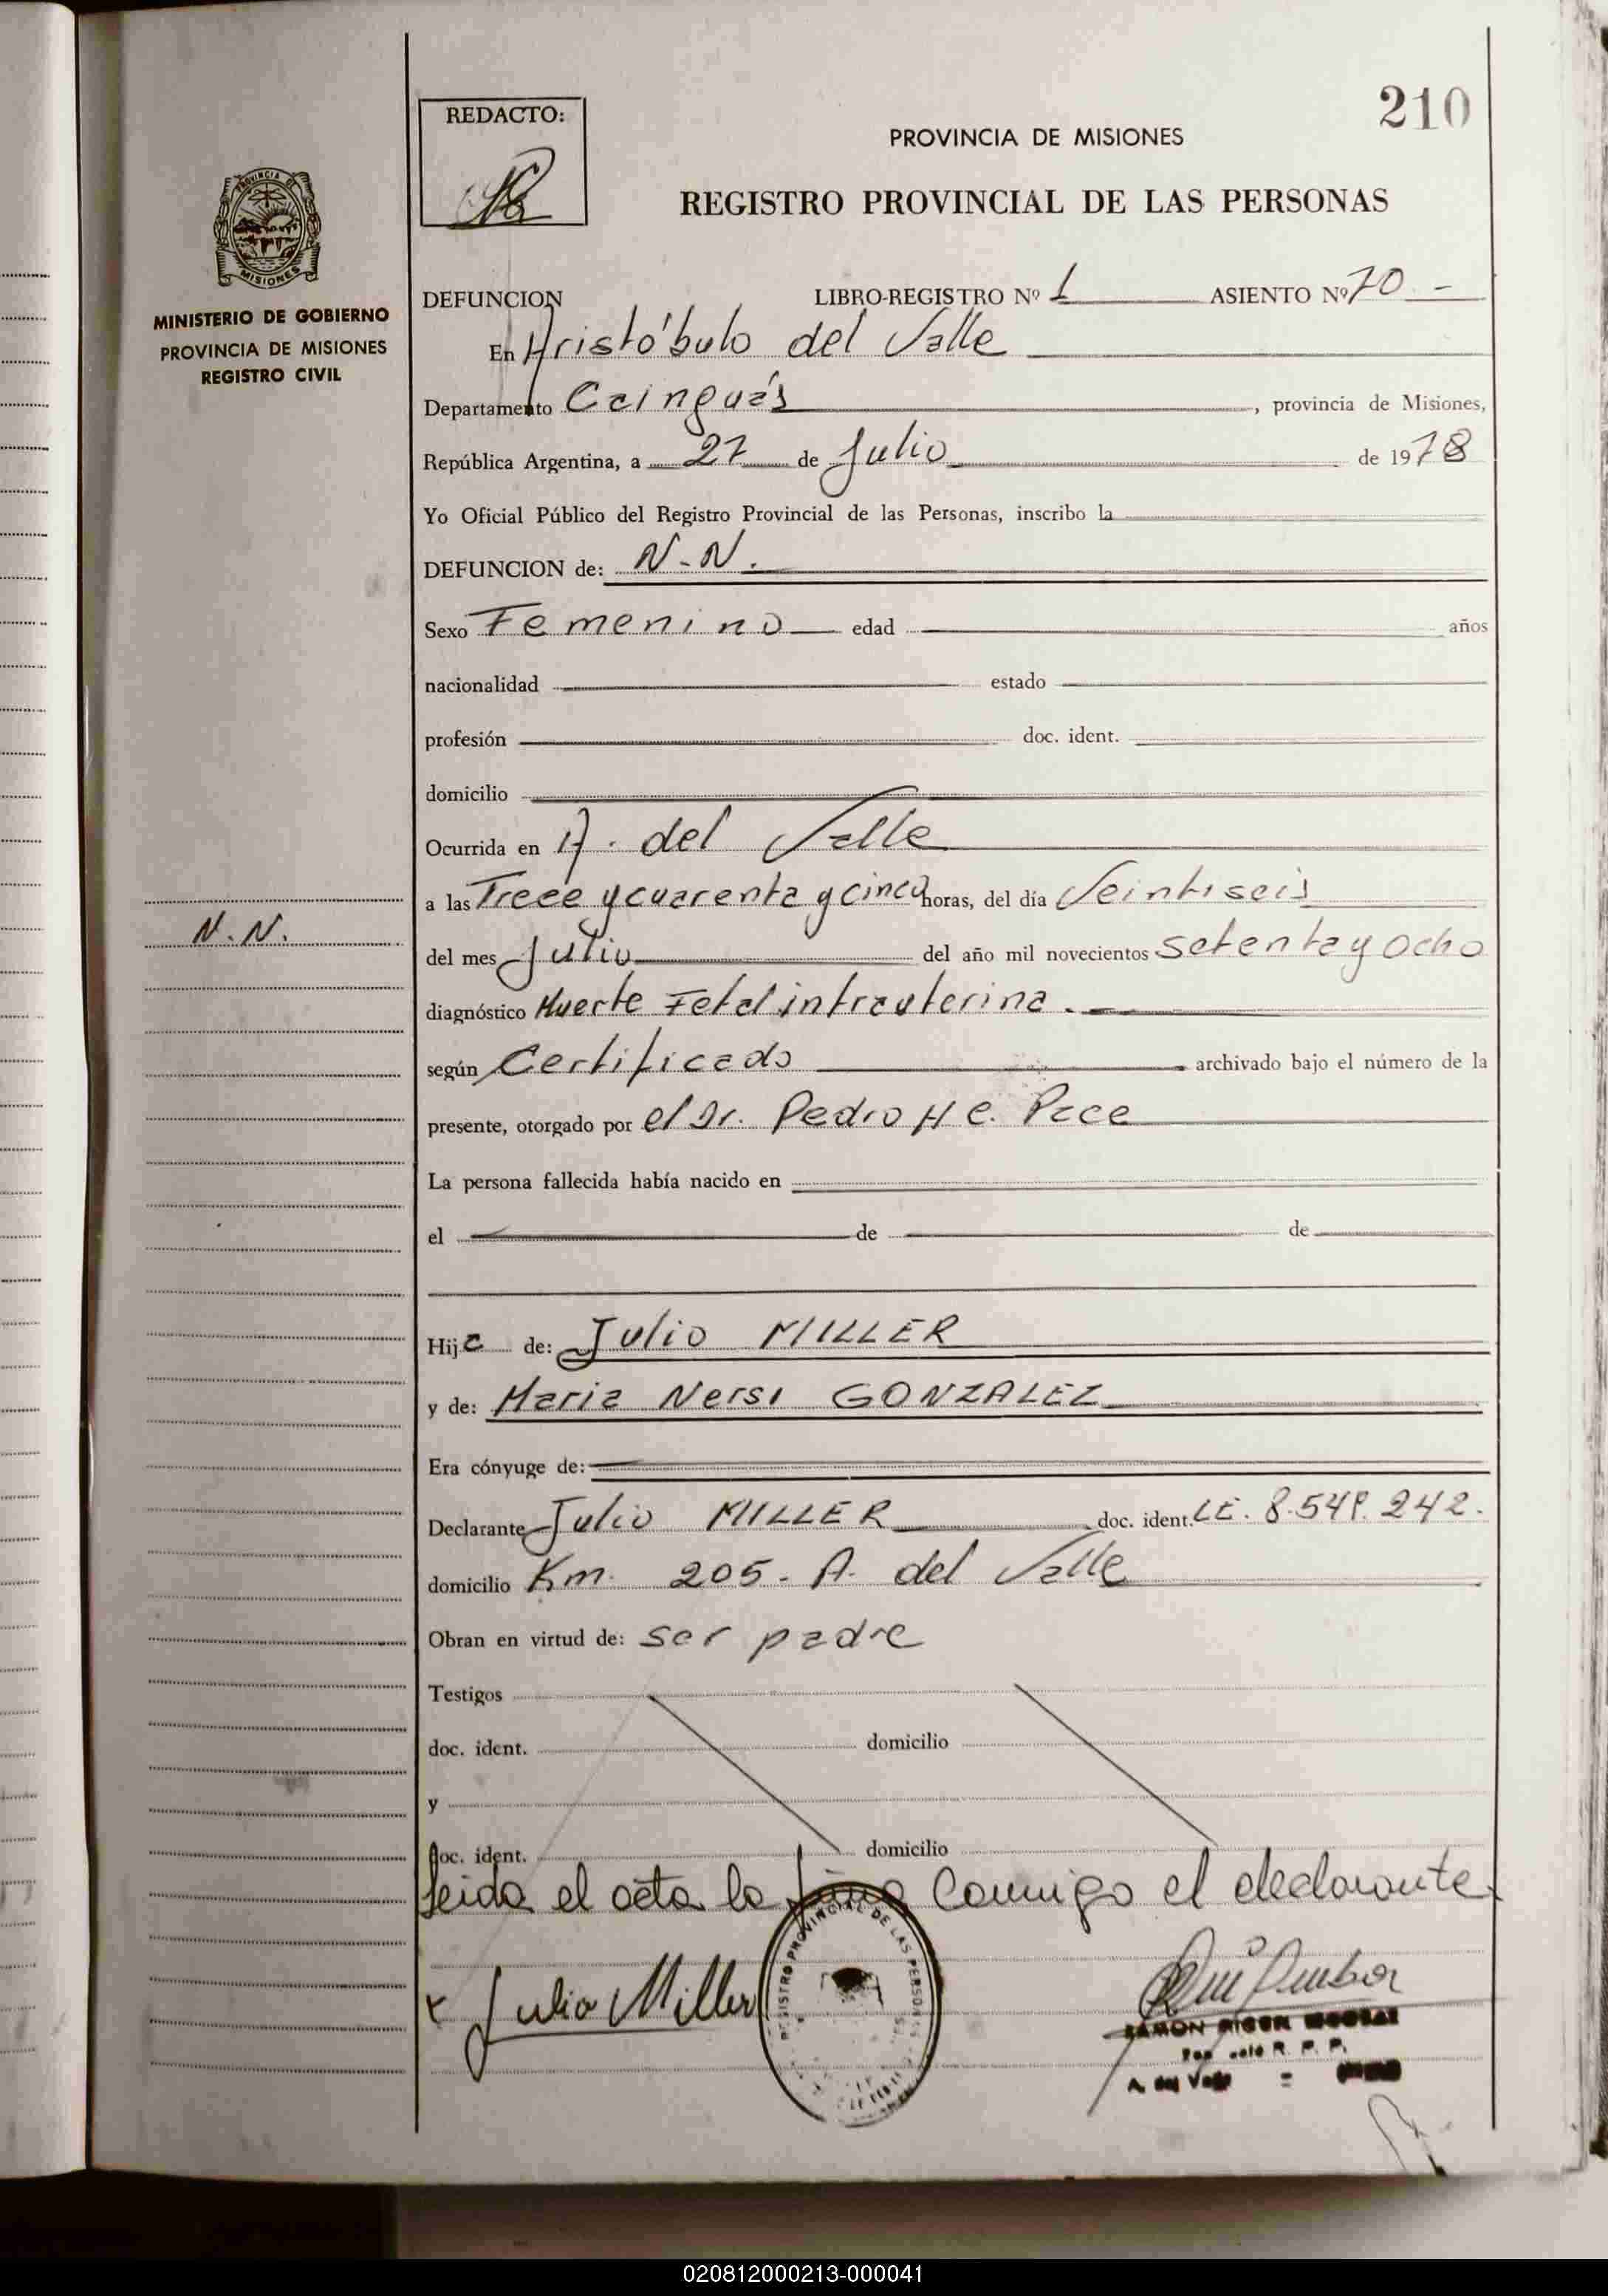 210
REDACTO:
PROVINCIA DE MISIONES
REGISTRO PROVINCIAL DE LAS PERSONAS
PROVINCIA DE MISIONES
MINISTERIO DE GOBIERNO
PROVINCIA DE MISIONES
REGISTRO CIVIL
DEFUNCION LIBRO-REGISTRO Nº 1 ASIENTO Nº 70 -
En Aristóbulo del Valle
Departamento Cainguás, provincia de Misiones,
República Argentina, a 27 de Julio de 1978
Yo Oficial Público del Registro Provincial de las Personas, inscribo la
DEFUNCION de: N-N.
Sexo Femenino edad años
nacionalidad estado
profesión doc. ident.
domicilio
Ocurrida en A. del Valle
a las Trece y cuarenta y cinco horas, del día Veintiseis
N.N.
del mes Julio del año mil novecientos setenta y ocho
diagnóstico Muerte Fetal intrauterina.
según Certificado archivado bajo el número de la
presente, otorgado por el Dr. Pedro H C. Pace
La persona fallecida había nacido en
el de de
Hija de: Julio MILLER
y de: Maria Nersi GONZALEZ
Era cónyuge de:
Declarante Julio MILLER doc. ident. LE. 8.549.242.
domicilio Km. 205- A. del Valle
Obran en virtud de: ser padre
Testigos
doc. ident. domicilio
y
doc. ident. domicilio
Leida el acta la firma conmigo el declarante
x Julio Miller
REGISTRO PROVINCIAL DE LAS PERSONAS
RAMON
R. P. P.
A. del Valle
020812000213-000041